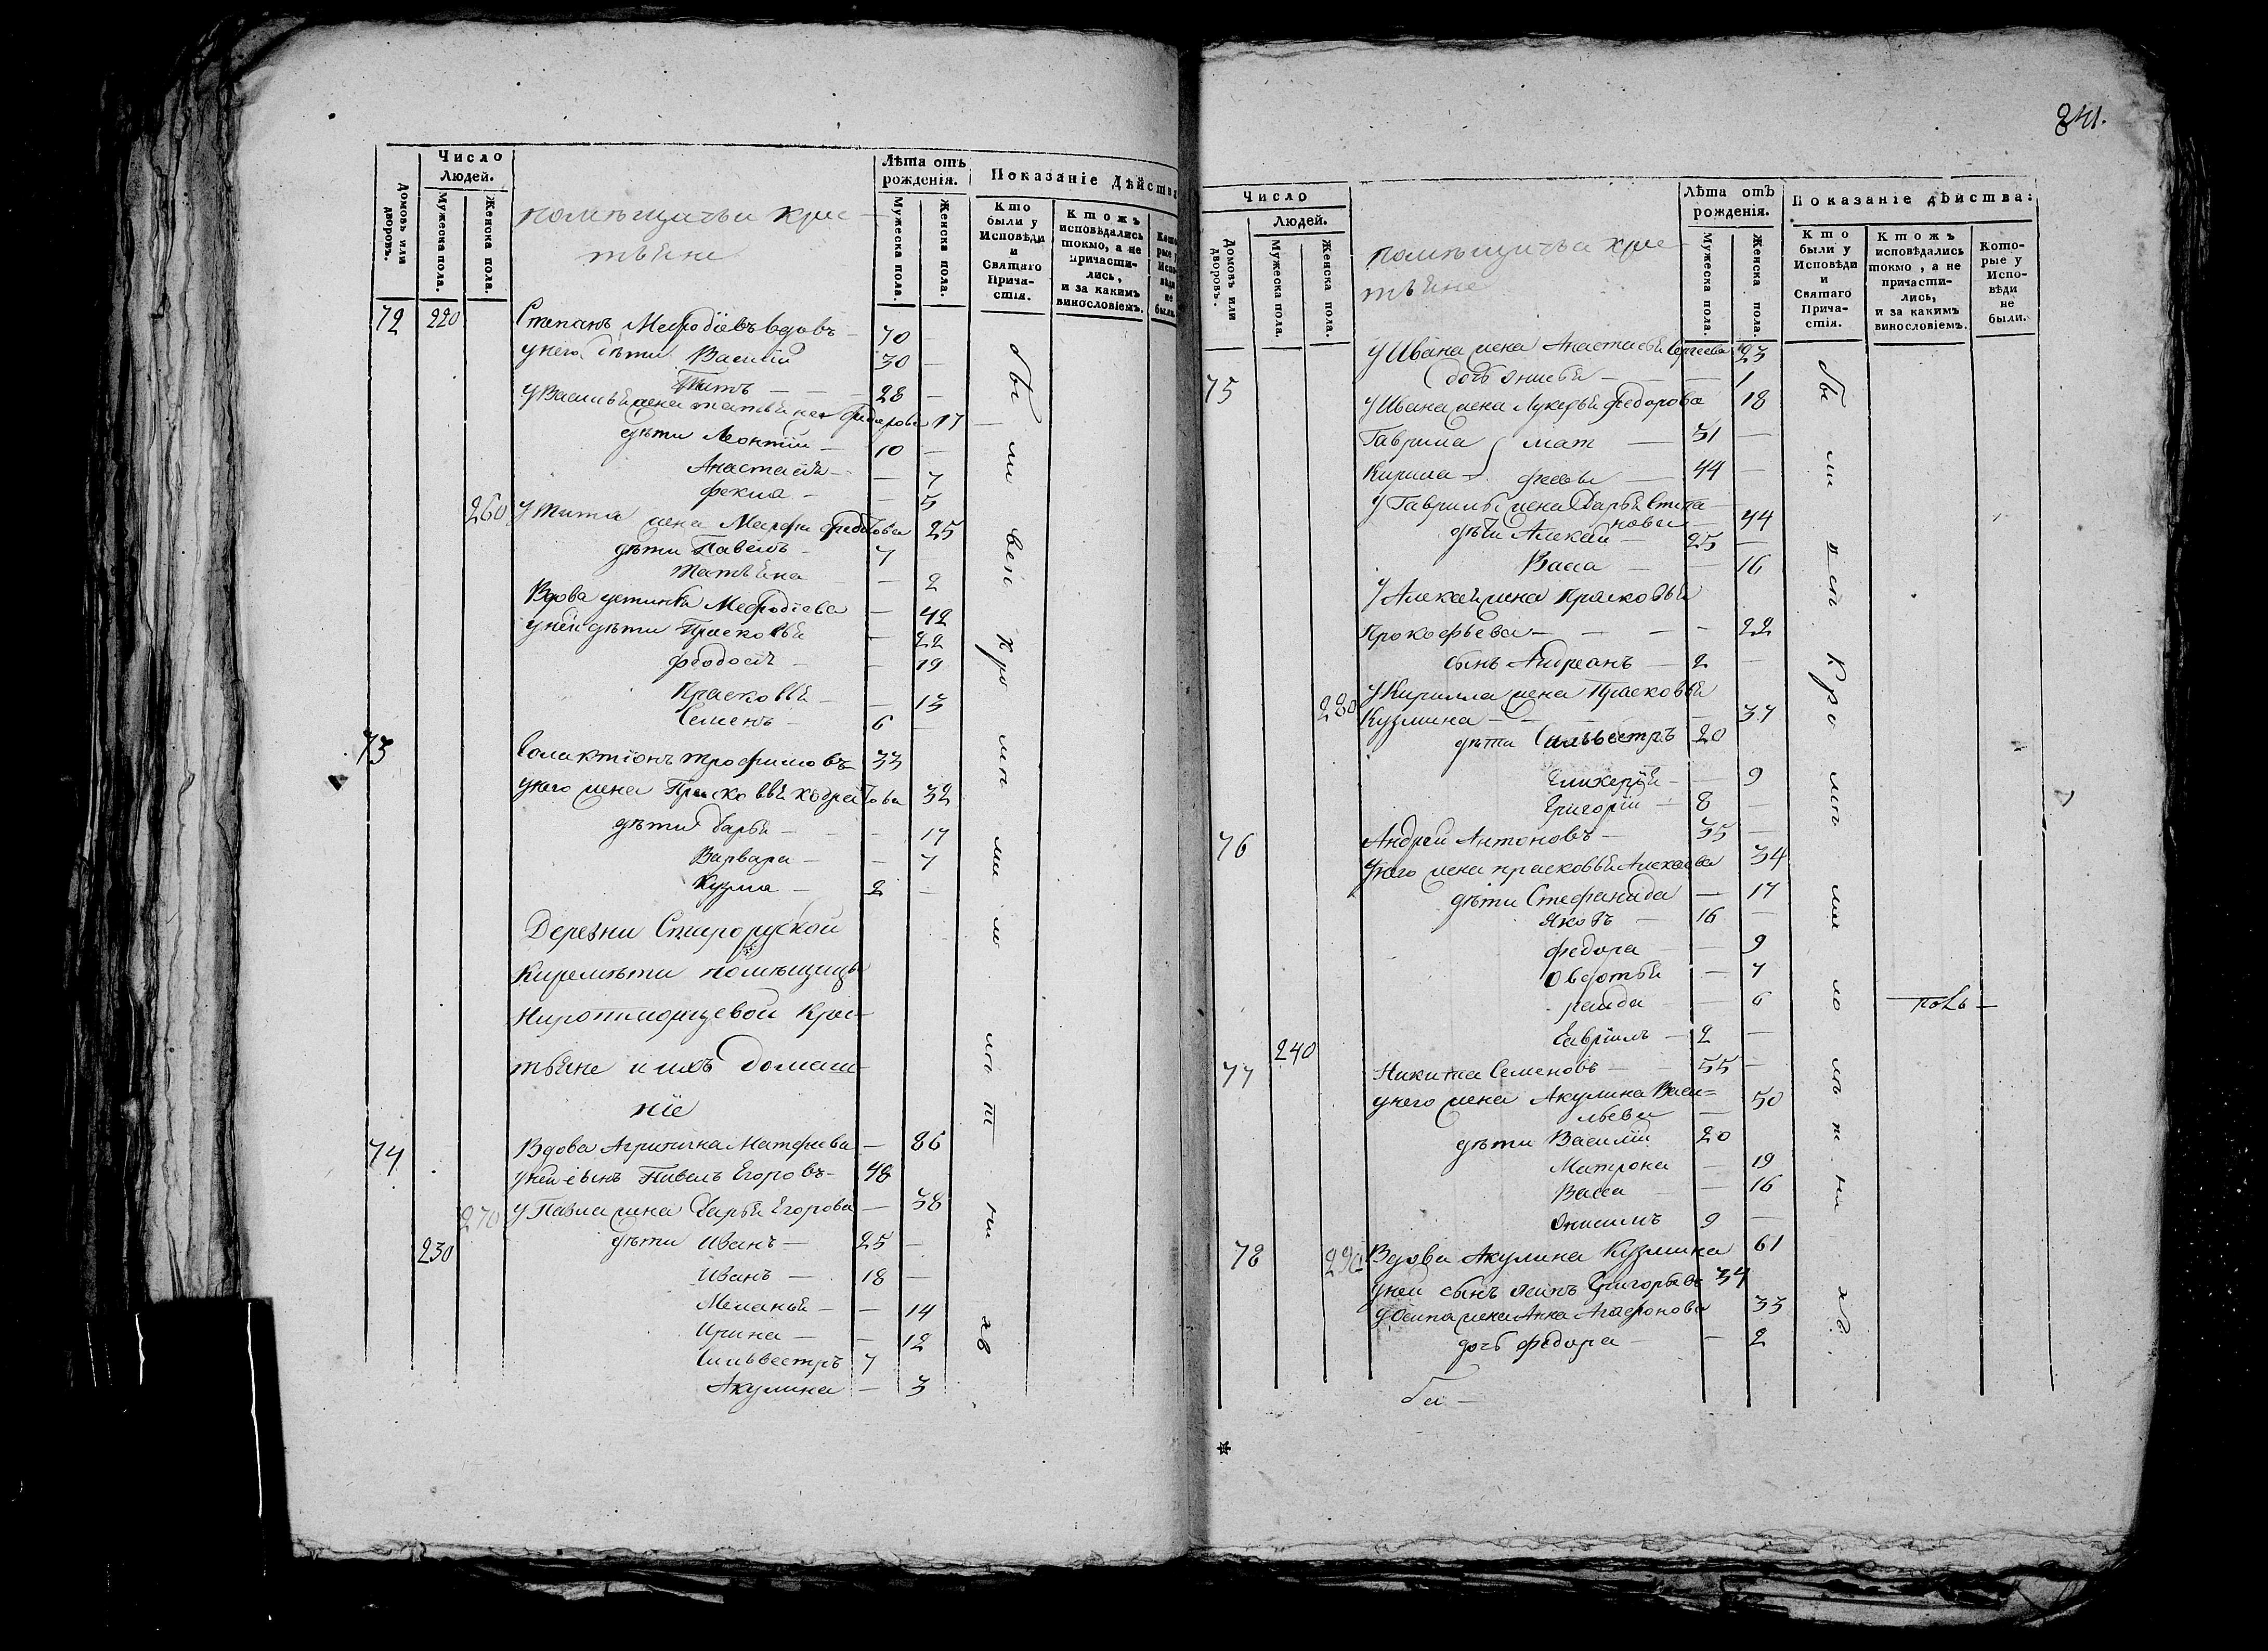 Число
Людей.
Домовъ или дворовъ.
Мужеска пола.
Женска пола.
помѣщичьи крес-
тьяне
Лѣта отъ
рожденія.
Мужеска пола.
Женска пола.
Показаніе Дѣйства
Кто были у Исповѣди и Святаго Прича-стія.
Кто жъ исповѣдались токмо, а не причасти-лись, и за какимъ винословіемъ.
72 220 Степанъ Мефодіевъ вдовъ 70 —
у него дѣти Василій 30 —
Титъ — 28 —
У Василья жена Татьяна 17
дѣти Леонтій — 10 —
Анастасія — — 7
Фекла — — 5
260 У Тита жена Марфа 25
дѣти Павелъ — 7
Татьяна — 2
Вдова Устинья Мефодіева — 42
у ней дѣти Прасковья — 22
Федосья — — 19
Прасковья — — 13
Семенъ — 6 —
73 Галактіонъ Трофимовъ 33
у него жена Прасковья 32
дѣти Дарья — — 17
Варвара — — 7
Кузма — 2 —
Деревни Старорусской
Киремети помѣщицы
крес-
тьяне и ихъ домаш-
ніе
74 Вдова Агрипина Матфиева — 86
у ней сынъ Павелъ Егоровъ — 48
270 У Павла жена Дарья Егорова — 38
230 дѣти Иванъ — 25 —
Иванъ — 18 —
Меланья — — 14
Ирина — — 12
Сильвестръ 7
Акулина — 3
241.
Число
Людей.
Домовъ или дворовъ.
Мужеска пола.
Женска пола.
помѣщичьи крес-
тьяне
Лѣта отъ
рожденія.
Мужеска пола.
Женска пола.
Показаніе дѣйства:
Кто были у Исповѣди и Святаго Прича-стія.
Кто жъ исповѣдались токмо, а не причасти-лись, и за какимъ винословіемъ.
Кото-рые у Испо-вѣди не были.
У Ивана жена Анастасья Сергеева 23
дочь Анисья — — 1
75 У Ивана жена Лукерья Федорова 18
Гаврила } мат — 31 —
Кирила } фееевы — 44 —
У Гаврилы жена Дарья Степа-
нова — 44
дѣти Алексей — 25 —
Васса — — 16
У Алексея жена Прасковья
Прокофьева — — — — 22
сынъ Андреанъ — 2 —
280 У Кирилла жена Прасковья
Кузмина — — 37
дѣти Сильвестръ 20
Гликерія — — 9
Григорій — 8 —
76 Андрей Антоновъ — 35 —
У него жена Прасковья Алексеева 34
дѣти Стефанида — 17
Яковъ — 16 —
Федора — — 9
Овдотья — 7
— 6
Гавріилъ — 2 —
240
77 Никита Семеновъ — 55 —
у него жена Акулина Васи=
льева — 50
дѣти Василій 20
Матрона — 19
Васса — 16
Онисимъ 9 —
78 290 Вдова Акулина Кузмина 61
у ней сынъ Осипъ Григорьевъ 34
У Осипа жена Анна Агафонова 33
дочь Федора — — 2